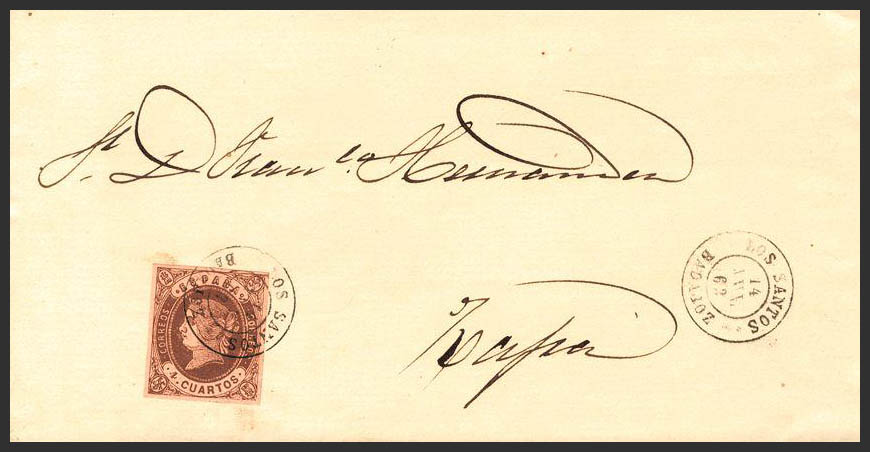 Sr. D. Franco. Hernandez
Zafra
ESPAÑA
CORREOS
4 CUARTOS
LOS SANTOS
BADAJOZ
14
JUL
62
LOS SANTOS